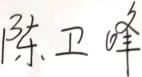 陈卫峰